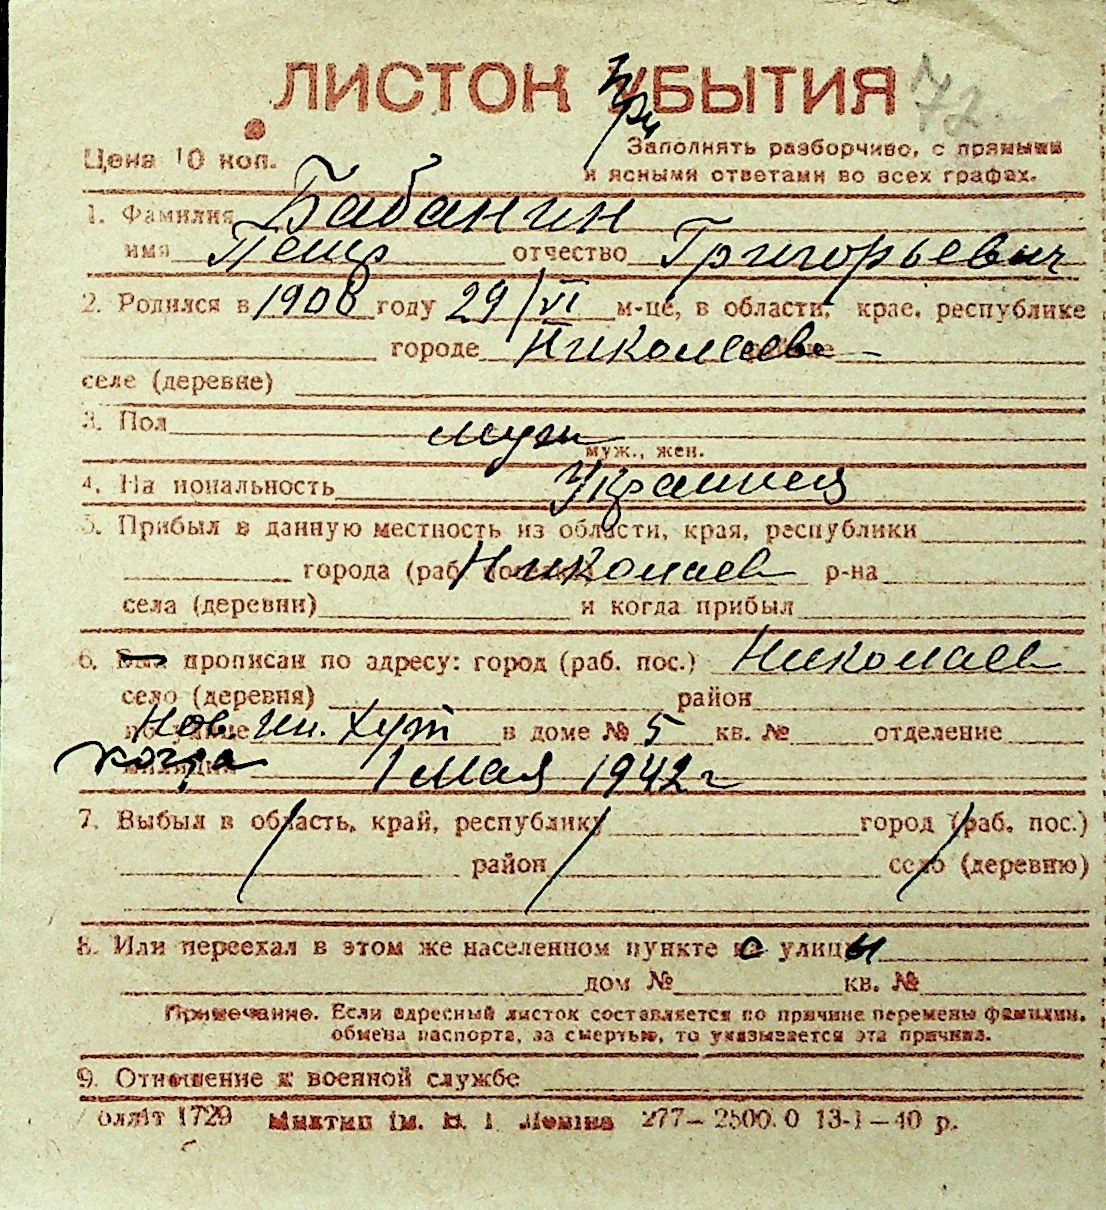 ЛИСТОК УБЫТИЯ
При
72.
Цена 10 коп.
Заполнять разборчиво, с прямыми
и ясными ответами во всех графах.
1. Фамилия Бабанин
имя Петр отчество Григорьевич
2. Родился в 1908 году 29/VI м-це, в области, крае, республике
городе Николаеве
селе (деревне)
3. Пол муж
муж., жен.
4. На иональность Украинец
5. Прибыл в данную местность из области, края, республики
города (раб. Николаев р-на
села (деревни) и когда прибыл
6. Был прописан по адресу: город (раб. пос.) Николаев
село (деревня) район
Нов. ул. Хут в доме № 5 кв. № отделение
когда 1 мая 1942 г
7. Выбыл в область, край, республику город (раб. пос.)
район село (деревню)
8. Или переехал в этом же населенном пункте с улицы
дом № кв. №
Примечание. Если адресный листок составляется по причине перемены фамилии,
обмена паспорта, за смертью, то указывается эта причина.
9. Отношение к военной службе
1729 Миктип ім. В. І. Леніна 277—2500.0 13-1—40 р.